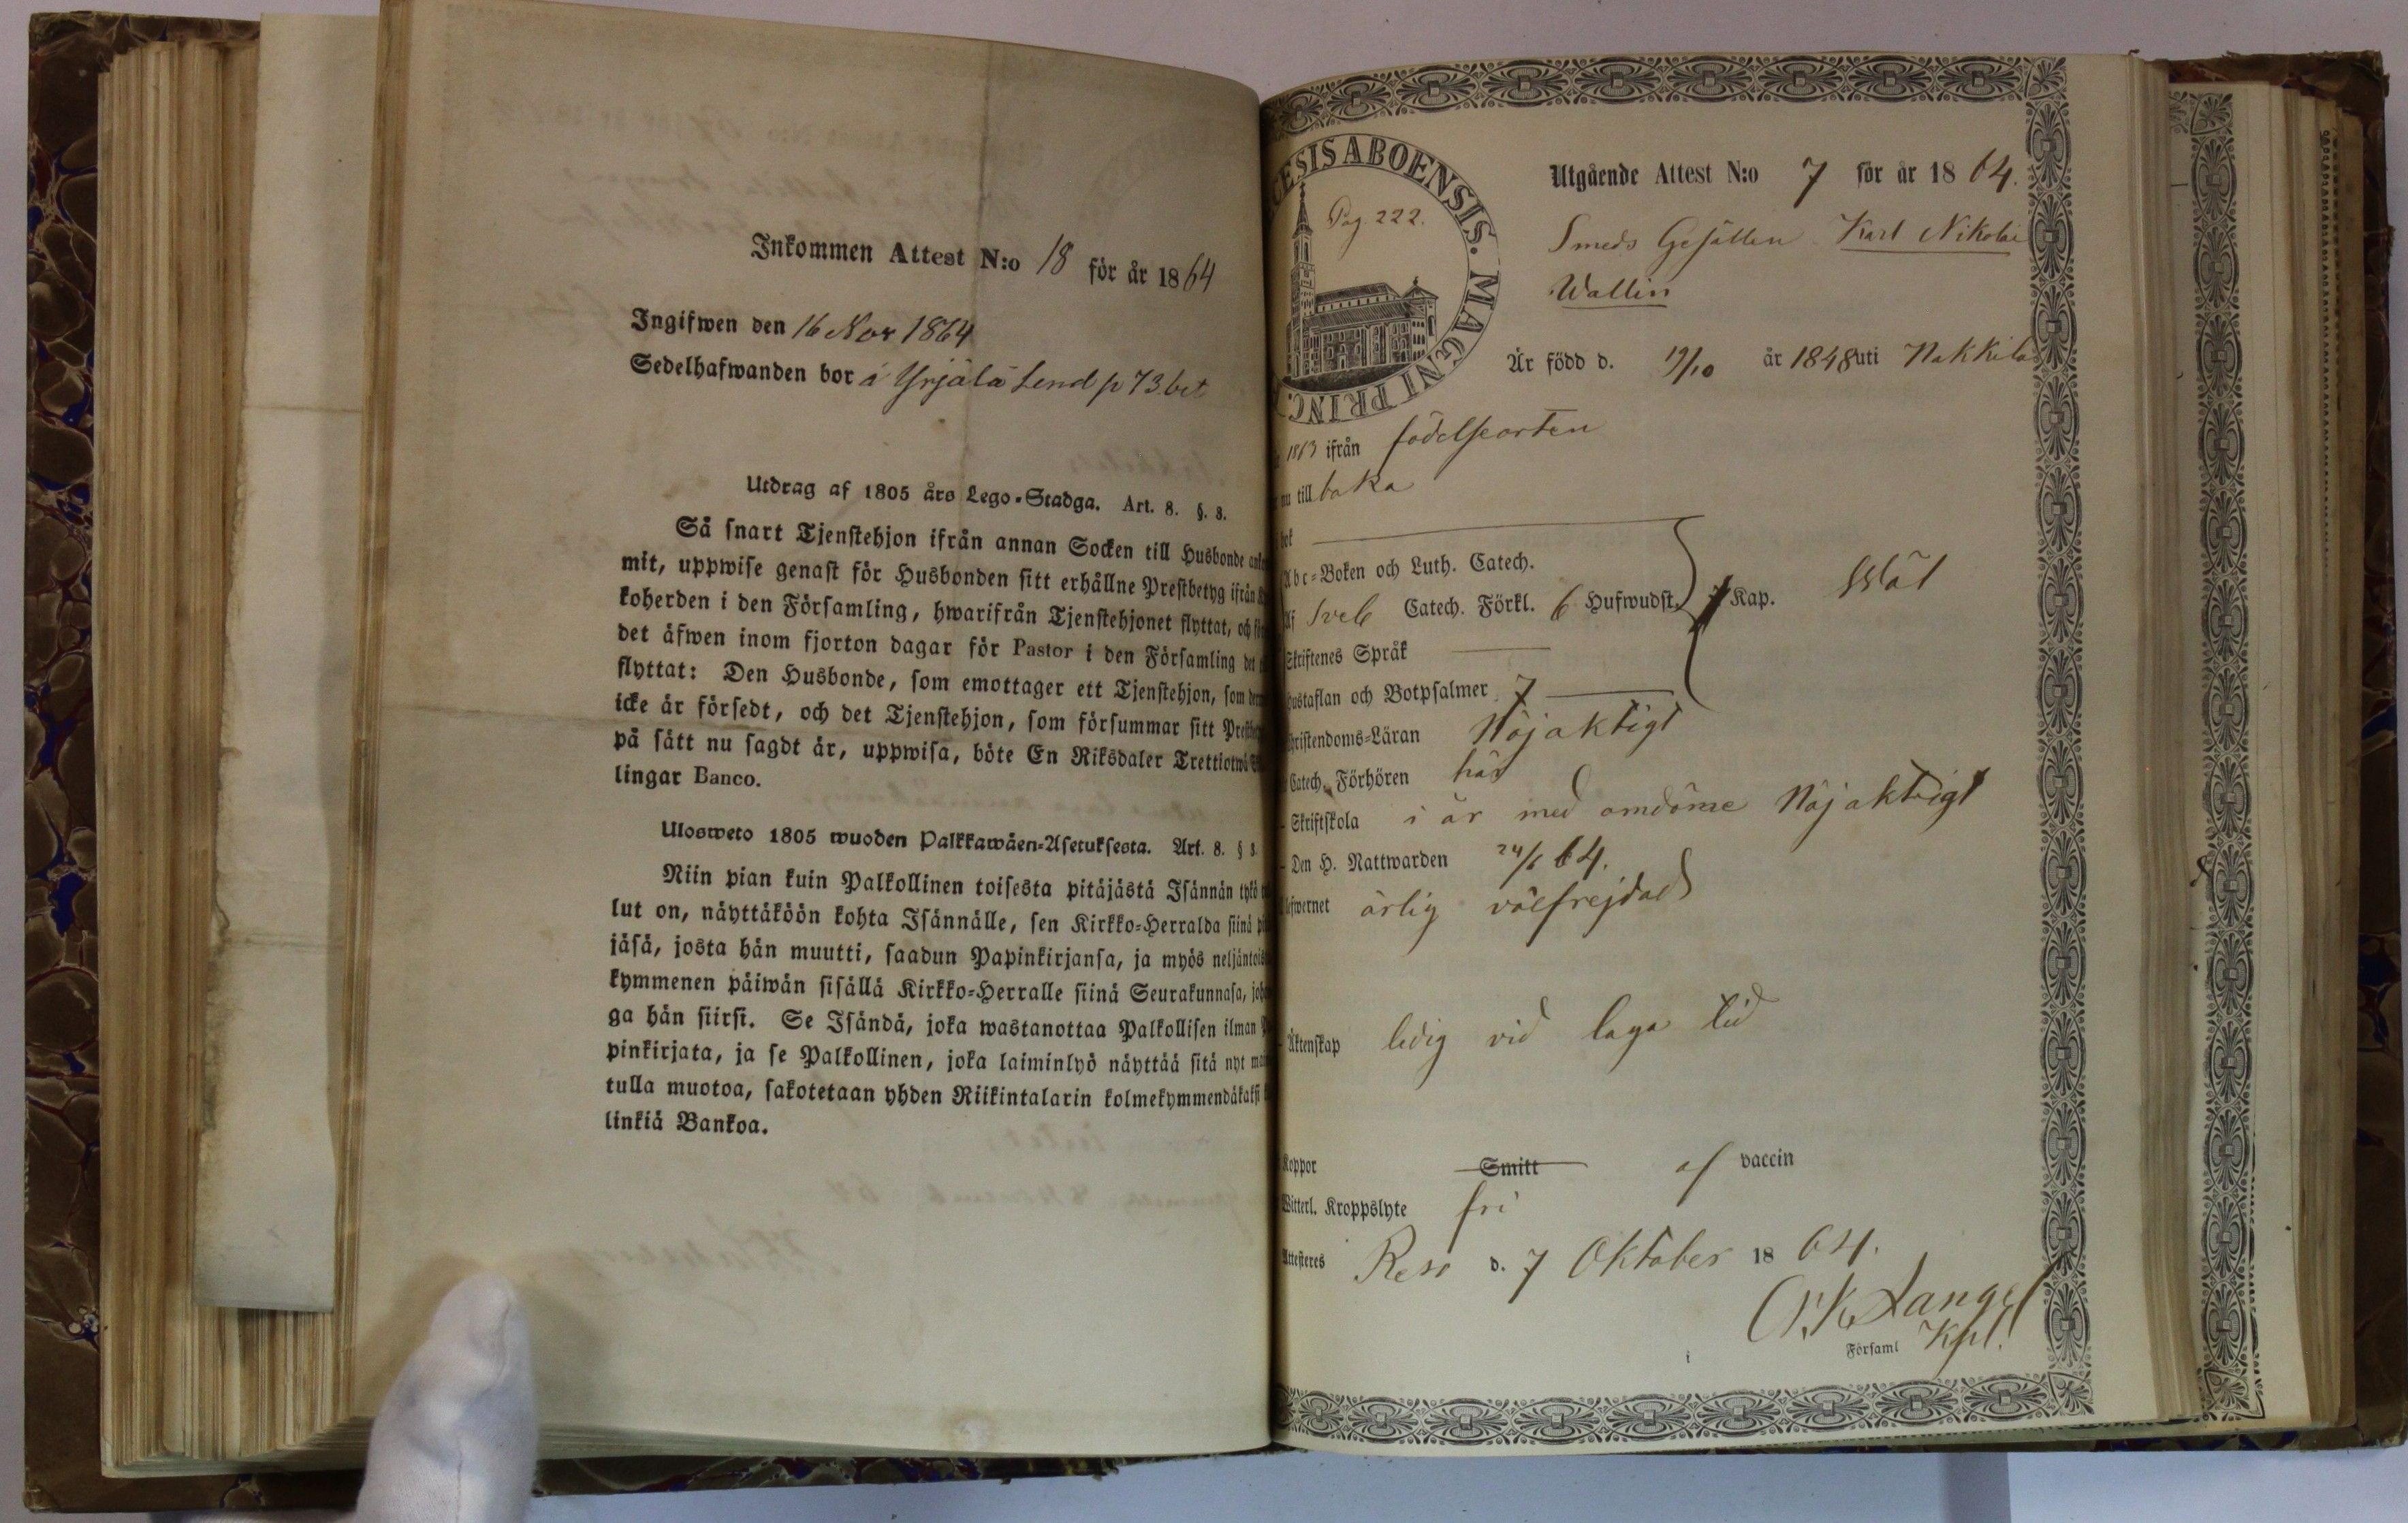 Inkommen Attest N:o 18 för år 1864
Ingifwen den 16 Nov 1864
Sedelhafwanden bor å Yrjälä Lend p 73 bet
Utdrag af 1805 års Lego-Stadga. Art. 8. §. 8.
Så snart Tjenstehjon ifrån annan Socken till Husbonde
mit, uppwise genast för Husbonden sitt erhållne Prestbetyg ifrån
koherden i den Församling, hwarifrån Tjenstehjonet flyttat, och
det äfwen inom fjorton dagar för Pastor i den Församling det
flyttat: Den Husbonde, som emottager ett Tjenstehjon, som
icke är försedt, och det Tjenstehjon, som försummar sitt
på sätt nu sagdt är, uppwisa, böte En Riksdaler Trettiotwå
lingar Banco.
Ulosweto 1805 wuoden Palkkawäen-Asetuksesta. Art. 8. §
Niin pian kuin Palkollinen toisesta pitäjästä Isännän tykö
lut on, näyttäköön kohta Isännälle, sen Kirkko-Herralda siinä
jäsä, josta hän muutti, saadun Papinkirjansa, ja myös neljäntois
kymmenen päiwän sisällä Kirkko-Herralle siinä Seurakunnasa,
ga hän siirsi. Se Isändä, joka wastanottaa Palkollisen ilman
pinkirjata, ja se Palkollinen, joka laiminlyö näyttää sitä nyt
tulla muotoa, sakotetaan yhden Riikintalarin kolmekymmendäkaksi
linkiä Bankoa.
CESIS ABOENSIS. MAGNI PRINC.
Pag 222.
Utgående Attest N:o 7 för år 1864.
Smeds Gesällen Karl Nikolai
Wallin
Är född d. 19/10 år 1848 uti Nakkila
1863 ifrån födelseorten
nu till baka
bok
Abc-Boken och Luth. Catech.
Af Sveb Catech. Förkl. 6 Hufwudst. 7 Kap.
Skriftenes Språk
Hustaflan och Botpsalmer 7
Christendoms-Läran Nöjaktigt
Catech. Förhören här
Skriftskola i år med omdöme Nöjaktigt
Den H. Nattwarden 24/6 64.
Lefwernet ärlig välfrejdad
Äktenskap ledig vid laga tid
Koppor Smitt af vaccin
Witterl. Kroppslyte fri
Attesteres Reso d. 7 Oktober 1864.
Langel
i Församl Kpl.